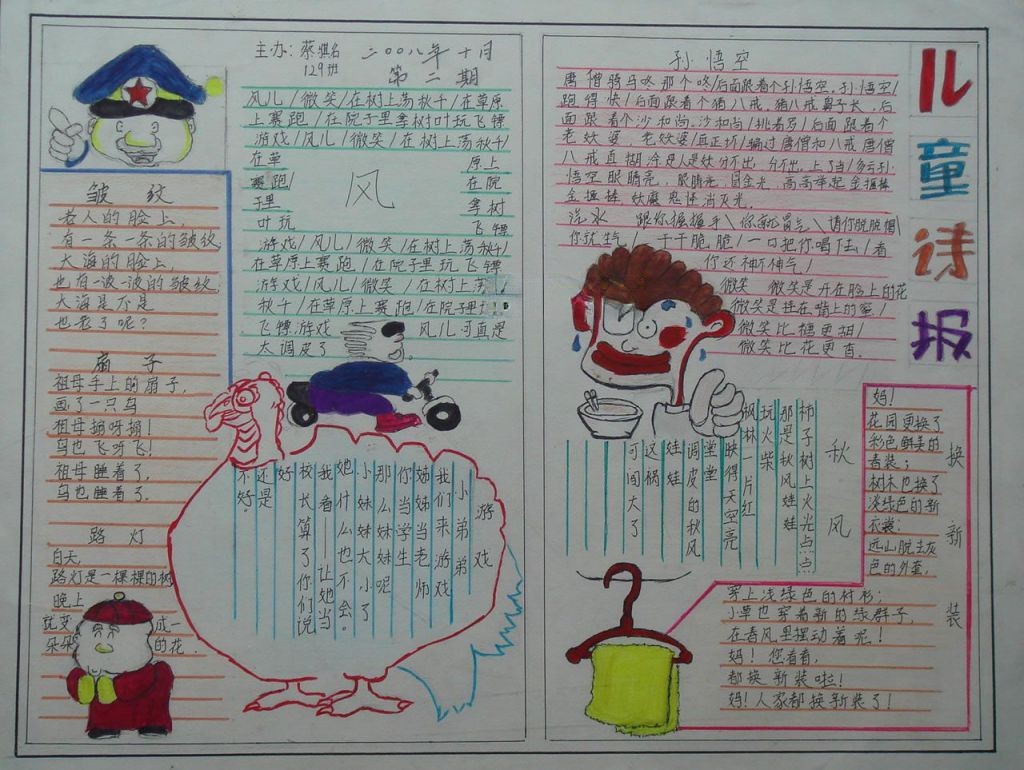 主办:蔡骐名
129班
二〇〇八年十月
第二期
风儿/微笑/在树上荡秋千/在草原
上赛跑/在院子里拿树叶玩飞镖
游戏/风儿/微笑/在树上荡秋千/
在草 原上
赛跑/ 在院
子里 拿树
叶玩 飞镖
风
游戏/风儿/微笑/在树上荡秋千/
在草原上赛跑/在院子里玩飞镖
游戏/风儿/微笑/在树上荡
秋千/在草原上赛跑/在院子里
飞镖游戏 风儿可真是
太调皮了
皱纹
老人的脸上,
有一条一条的皱纹
大海的脸上,
也有一波一波的皱纹
大海是不是
也老了呢?
扇子
祖母手上的扇子,
画了一只鸟
祖母捐呀捐!
鸟也飞呀飞!
祖母睡着了,
鸟也睡着了.
路灯
白天,
路灯是一棵棵的树
晚上
就变 成一
朵朵 的花.
游戏
小弟弟
我们来游戏
姊姊当老师
你当学生
那么妹妹呢
小妹妹太小了
她什么也不会。
我看——让她当
校长算了你们说
好
还是
不好。
孙悟空
唐僧骑马咚那个咚/后面跟着个孙悟空.孙悟空/
跑得快/后面跟着个猪八戒.猪八戒鼻子长,后
面跟着个沙和尚.沙和尚/挑着箩/后面跟着个
老妖婆,老妖婆/真正坏/骗过唐僧和八戒唐僧
八戒真糊涂是人是妖分不出,分不出,上了当/多亏孙
悟空眼睛亮,眼睛亮,冒金光,高高举起金箍棒
金箍棒,妖魔鬼怪消灭光.
汽水 跟你握握手\你就冒气\请你脱脱帽
你就生气/干干脆脆/一口把你喝下去/看
你还神不神气/
微笑 微笑是开在脸上的花
微笑是挂在嘴上的蜜/
微笑比糖更甜/
微笑比花更香.
儿童诗报
秋风
柿子树上火光点点
那是秋风娃娃
玩火柴
枫林一片红
映得天空亮
堂堂
调皮的秋风
娃娃
这祸
可闯大了
换新装
妈!
花园更换了
彩色鲜美的
春装;
树木也换了
淡绿色的新
衣裳;
远山脱去灰
色的外套,
穿上浅绿色的衬衫;
小草也穿着新的绿群子,
在春风里摆动着呢!
妈!您看看,
都换新装啦!
妈!人家都换新装了!